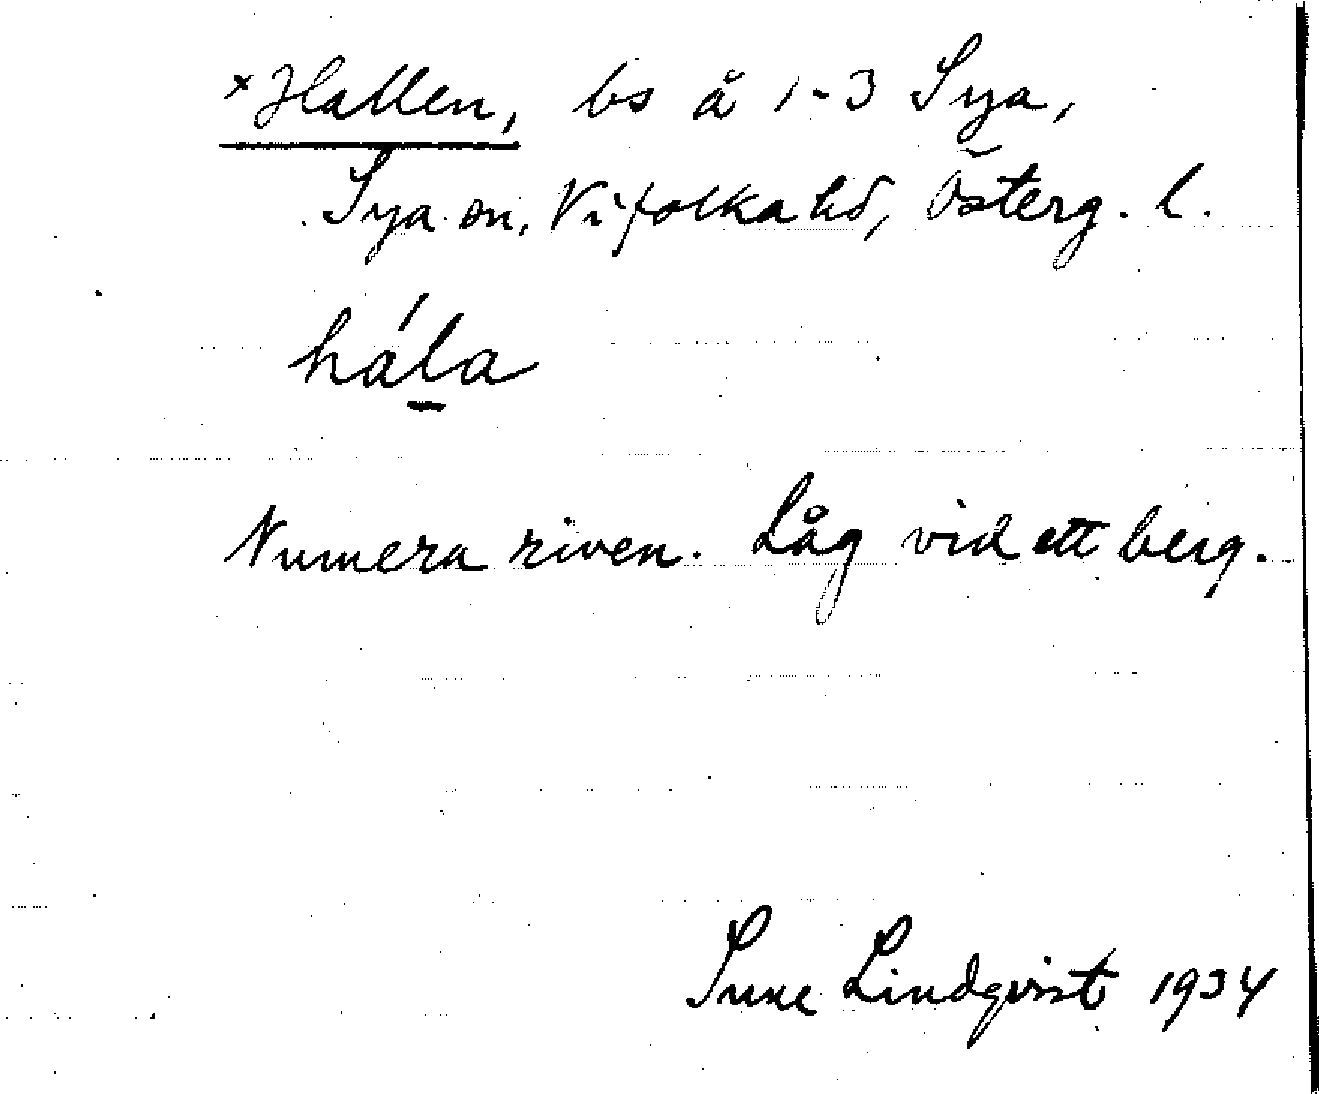 ×Hallen, bs å 1-3 Sya,
Sya sn, Vifolka hd, Österg. l.
hála
Numera riven. Låg vid ett berg.
Sune Lindqvist 1934